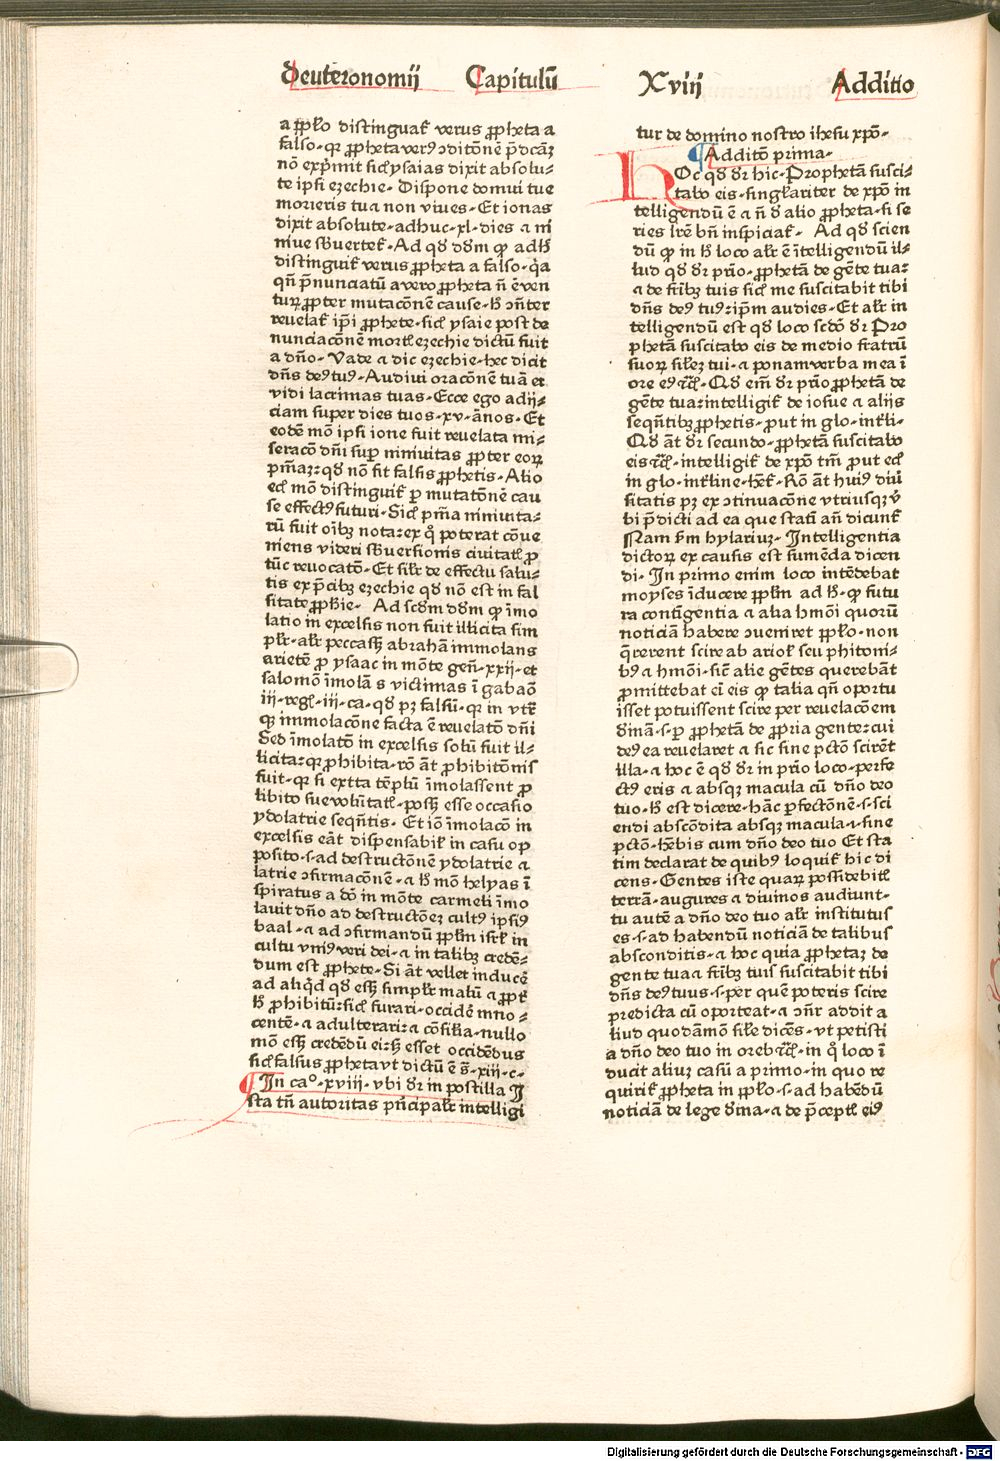 Deuteronomij Capitulū Xviij Additio
a ꝓpl̄o distinguat᷑ verus ꝓpheta a
falso · qꝛ ꝓpheta verꝰ ꝯditōnē p̄dcāꝫ
nō exp̄mit sicꝭ ysaias dixit absolu⸗
te ipsi ezechie · Dispone domui tue
morieris tu a non viues · Et ionas
dixit absolute · adhuc · xl · dies a ni
niue sb̄uertet᷑ · Ad qd̄ dd̄m ꝙ adhꝭ
distinguit᷑ verus ꝓpheta a falso · q̇a
qn̄ p̄nunciatū a vero ꝓpheta n̄ ēven
turꝝ ꝓpter mutacōnē cause · hꝭ ꝯn̄ter
reuelat᷑ ip̄i ꝓphete · sicꝭ ysaie post de
nunciacōnē mortꝭ ezechie dictū fuit
a dn̄o · Vade a dic ezechie · hec dicit
dn̄s deꝰ tuꝰ · Audiui oracōnē tuā et
vidi lacrimas tuas · Ecce ego adij⸗
ciam super dies tuos · xv · ānos · Et
eodē mō ipsi ione fuit reuelata mi⸗
seracō dn̄i suꝑ niniuitas ꝓpter eorꝝ
pn̄iaꝫ: qd̄ nō fit falsis ꝓphetis · Alio
ecꝭ mō distinguit᷑ ꝑ mutatōnē cau
se effectꝰ futuri · Sicꝭ pn̄ia niniuita⸗
rū fuit oībꝫ nota: ex qͦ poterat cōue
niens videri sb̄uersionis ciuitatꝭ ꝓ
tūc reuocatō · Et sil̄r de effectu salu⸗
tis ex p̄cibꝫ ezechie qd̄ nō est in fal
sitate ꝓph̄ie · Ad scd̄m dd̄m ꝙ īmo
latio in excelsis non fuit illicita sim
pl̄r · al̄r peccasꝫ abrahā immolans
arietē ꝓ ysaac in mōte gen̄ · xxij · et
salomō īmolās victimas ī gabaō
iij · regꝭ · iij · ca · qd̄ pꝫ falsū · qꝛ in vtꝛ̄
qꝫ immolacōne facta ē reuelatō dn̄i
Sed īmolatō in excelsis solū fuit il⸗
licita: qꝛ ꝓhibita · rō āt ꝓhibitōnis
fuit · qꝛ si extra tēplū īmolassent ꝓ
libito sue volūtatꝭ · possꝫ esse occasio
ydolatrie seqn̄tis · Et iō īmolacō in
excelsis eāt dispensabil᷑ in casu op
posito · s · ad destructōnē ydolatrie a
latrie ꝯfirmacōnē · a hꝭ mō helyas ī
spiratus a dō in mōte carmeli īmo
lauit dn̄o ad destructōeꝫ cultꝰ ipsiꝰ
baal · a ad ꝯfirmandū ꝓpl̄m isrl̄ in
cultu vniꝰ veri dei · a in talibꝫ credē⸗
dum est ꝓphete · Si āt vellet inducē
ad aliq̇d qd̄ esꝫ simpl̄r malū a ꝓpt̄
hꝭ ꝓhibitū: sicꝭ furari · occidē inno⸗
centē · a adulterari: a cōsilia · nullo
mō esꝫ credēdū ei: ꝫ esset occidēdus
sicꝭ falsus ꝓpheta vt dictū ē s̄ · xiij · c ·
¶ In caº · xviij · vbi dr̄ in postilla I
sta tn̄ autoritas pn̄cipal̄r intelligi
tur de domino nostro ihesu xp̄o ·
¶ Additō prima ·
HOc qd̄ dr̄ hic · Prophetā susci⸗
tabo eis · singl̄ariter de xp̄o in
telligendū ē a n̄ d̄ alio ꝓpheta · si se
ries lr̄e bn̄ inspiciat᷑ · Ad qd̄ scien
dū ꝙ in hꝭ loco al̄r ē ītelligendū il⸗
lud qd̄ dr̄ pr̄io · ꝓphetā de gēte tua:
a de fr̄ibꝫ tuis sicꝭ me suscitabit tibi
dn̄s deꝰ tuꝰ: ip̄m audies · Et al̄r in
telligendū est qd̄ loco scd̄o dr̄ Pro
phetā suscitabo eis de medio fratrū
suorꝝ sil̄eꝫ tui · a ponam verba mea ī
ore eiꝰ ꝛc̄ · Qd̄ eni̅ dr̄ pr̄io ꝓphetā de
gēte tua: intelligit᷑ de iosue a alijs
seqn̄tibꝫ ꝓphetis · ꝓut in glo · int̄li ·
Qd̄ āt dr̄ secundo · ꝓphetā suscitabo
eis ꝛc̄ · intelligit᷑ de xp̄o tm̄ ꝓut ecꝭ
in glo · int̄line · hēt᷑ · Rō āt huiꝰ diū
sitatis pꝫ ex ꝯtinuacōne vtriusqꝫ v̄
bi p̄dicti ad ea que stati̅ an̄ dicunt᷑
Nam sm̄ hylariuꝫ · Intelligentia
dictorꝝ ex causis est sumēda dicen
di · In primo enim loco intēdebat
moyses īducere ꝓpl̄m ad hꝭ · ꝙ futu
ra contīgentia a alia hmōi quorū
noticiā habere ꝯueniret ꝓpl̄o · non
q̄rerent scire ab ariol᷑ seu phitoni⸗
bꝰ a hmōi · sic̄ alie gētes querebāt
ꝓmittebat ei̅ eis ꝙ talia qn̄ oportu
isset potuissent scire per reuelacōem
diuinā · s · ꝑ ꝓphetā de ꝓpria gente: cui
deꝰ ea reuelaret a sic sine pctō scirēt
illa · a hoc ē qd̄ dr̄ in pr̄io loco · perfe
ctꝰ eris a absqꝫ macula cū dn̄o deo
tuo · hꝭ est dicere · hāc ꝑfectōnē · s · sci
endi abscōdita absqꝫ macula · i · sine
pctō · hēbis cum dn̄o deo tuo Et sta
tim declarat de quibꝰ loquit᷑ hic di
cens · Gentes iste quarꝝ possidebitꝭ
terrā · augures a diuinos audiunt ·
tu autē a dn̄o deo tuo al̄r institutus
es · s · ad habendū noticiā de talibus
absconditis · a hoc quia ꝓphetaꝫ de
gente tua a fr̄ibꝫ tuis suscitabit tibi
dn̄s deꝰ tuus · s · per quē poteris scire
predicta cū oporteat · a ꝯn̄r addit a
liud quodāmō sil̄e dicēs · vt petisti
a dn̄o deo tuo in oreb ꝛc̄ · in qͦ loco ī
ducit aliuꝫ casū a primo · in quo re
quirit᷑ ꝓpheta in ꝓpl̄o · s · ad habēdū
noticiā de lege diuina · a de p̄ceptꝭ eiꝰ
Digitalisierung gefördert durch die Deutsche Forschungsgemeinschaft - DFG